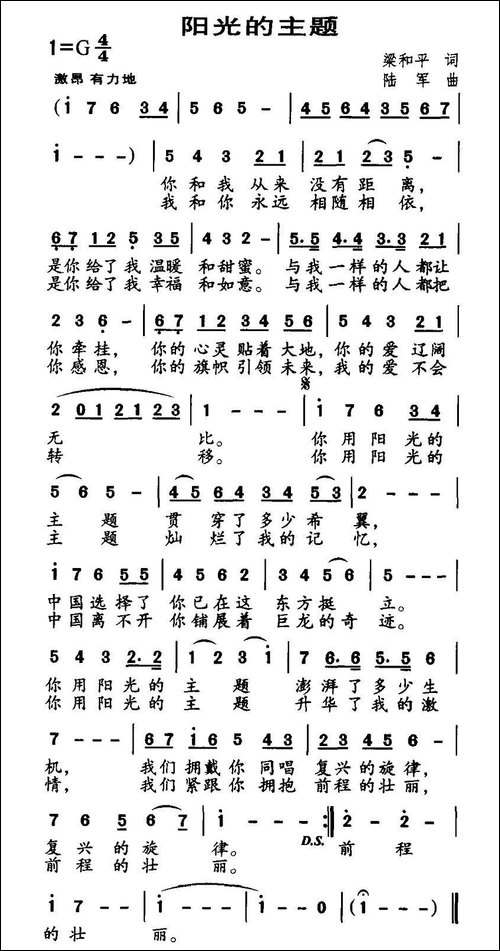 阳光的主题
1=G 4/4
梁和平 词
激昂 有力地
陆 军 曲
(i 7 6 3 4 | 5 6 5 - | 4 5 6 4 3 5 6 7 |
i - - - ) | 5 4 3 2 1 | 2 1 2 3 5 |
你 和 我 从 来 没 有 距 离,
我 和 你 永 远 相 随 相 依,
6 7 1 2 5 3 5 | 4 3 2 - | 5. 5 4. 4 3. 3 2 1 |
是你给了我 温暖 和甜蜜。 与我一样的人都让
是你给了我 幸福 和如意。 与我一样的人都把
2 3 6 - | 6 7 1 2 3 4 5 6 | 5 4 3 2 1 |
你 牵 挂, 你的 心灵 贴着 大地, 你 的 爱 辽阔
你 感 恩, 你的 旗帜 引领 未来, 我 的 爱 不会
2 0 1 2 1 2 3 | 1 - - - | i 7 6 3 4 |
无 比。 你 用 阳 光 的
转 移。 你 用 阳 光 的
5 6 5 - | 4 5 6 4 3 4 5 3 | 2 - - - |
主 题 贯 穿 了 多 少 希 翼,
主 题 灿 烂 了 我 的 记 忆,
i 7 6 5 5 | 4 5 6 2 | 3 4 5 6 | 5 - - - |
中 国 选 择 了 你 已 在 这 东 方 挺 立。
中 国 离 不 开 你 铺 展 着 巨 龙 的 奇 迹。
5 4 3 2. 2 | 1 2 3 i | 7 6. 6 5. 5 6 |
你 用 阳 光 的 主 题 澎 湃 了 多 少 生
你 用 阳 光 的 主 题 升 华 了 我 的 激
7 - - - | 6 7 i 6 5 4 3 | 2 3 4 5 6 - |
机, 我们 拥戴 你 同唱 复兴 的旋 律,
情, 我们 紧跟 你 拥抱 前程 的壮 丽,
7 6 5 6 7 | i - - - :| 2 - 2 - |
D.S.
复 兴 的 旋 律。 前 程
前 程 的 壮 丽。
i 7 - - | i - - - | i - - 0 | i - - - ‖
的 壮 丽。